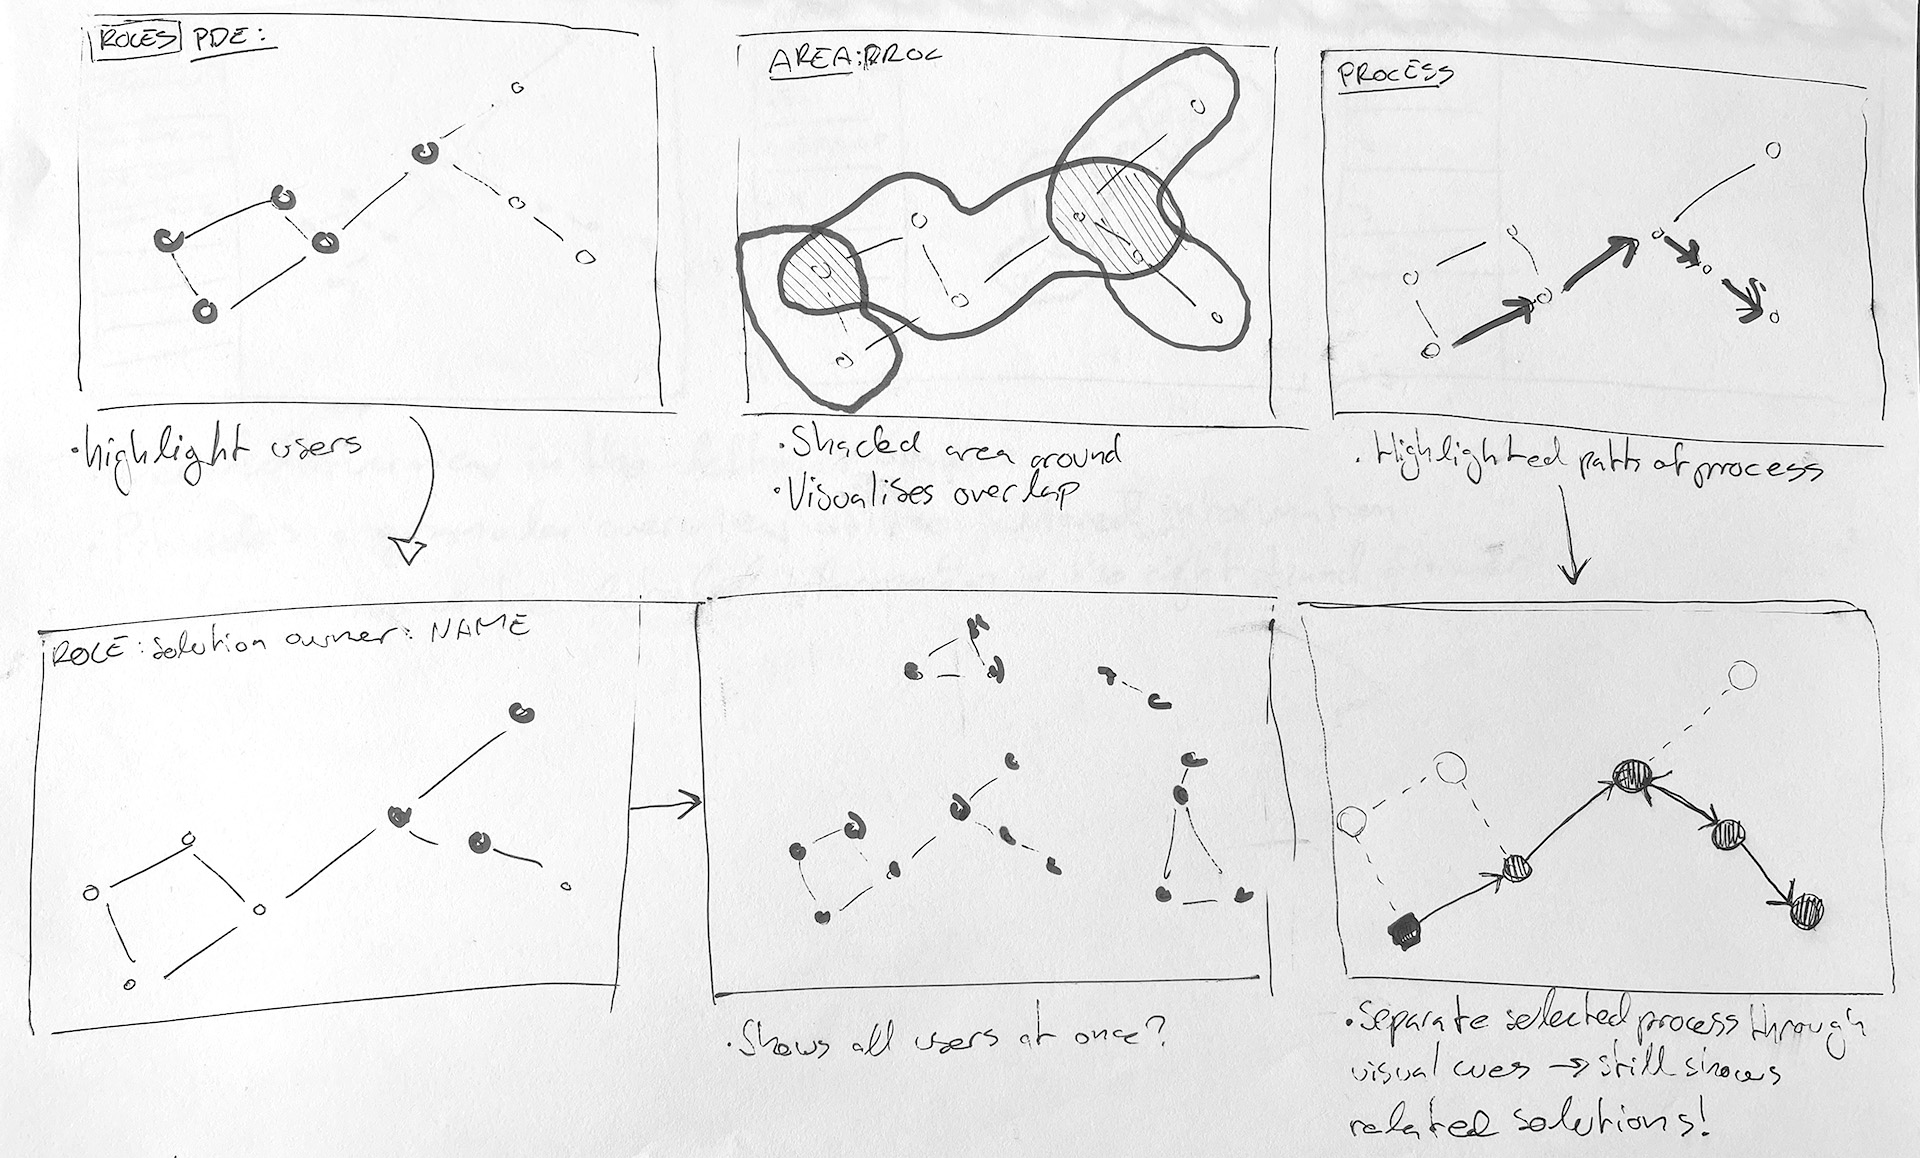 ROLES PDE:
AREA: PROC
PROCESS
• highlight users
• Shaded area around
• Visualises overlap
• Highlighted path of process
ROLE: Solution owner: NAME
• Shows all users at once?
• Separate selected process through
visual cues → still shows
related solutions!